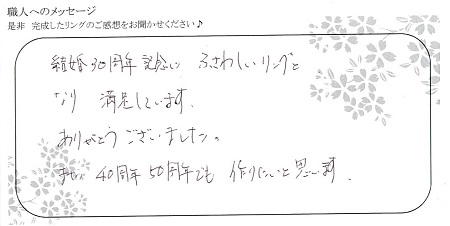 職人へのメッセージ
是非 完成したリングのご感想をお聞かせください♪
結婚30周年記念に ふさわしいリングと
なり 満足しています。
ありがとうございました。
また 40周年50周年でも 作りたいと思います。